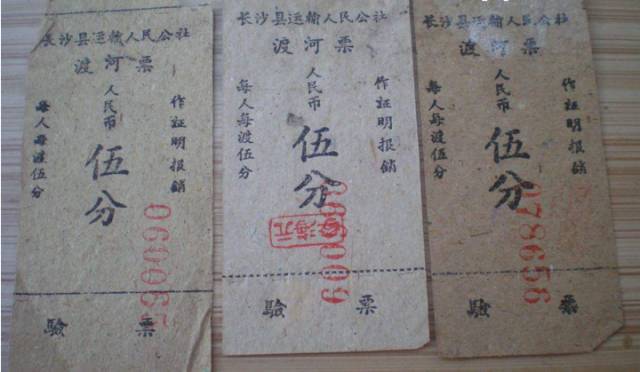 长沙县运输人民公社
渡河票
作証明报銷
人民币
伍分
每人每渡伍分
驗票
长沙县运输人民公社
渡河票
作証明报銷
人民币
伍分
每人每渡伍分
驗票
长沙县运输人民公社
渡河票
作証明报銷
人民币
伍分
每人每渡伍分
078656
驗票